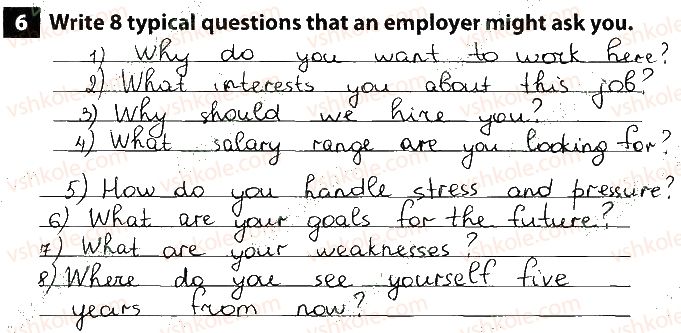 6 Write 8 typical questions that an employer might ask you.
1) Why do you want to work here?
2) What interests you about this job?
3) Why should we hire you?
4) What salary range are you looking for?
5) How do you handle stress and pressure?
6) What are your goals for the future?
7) What are your weaknesses?
8) Where do you see yourself five
years from now?